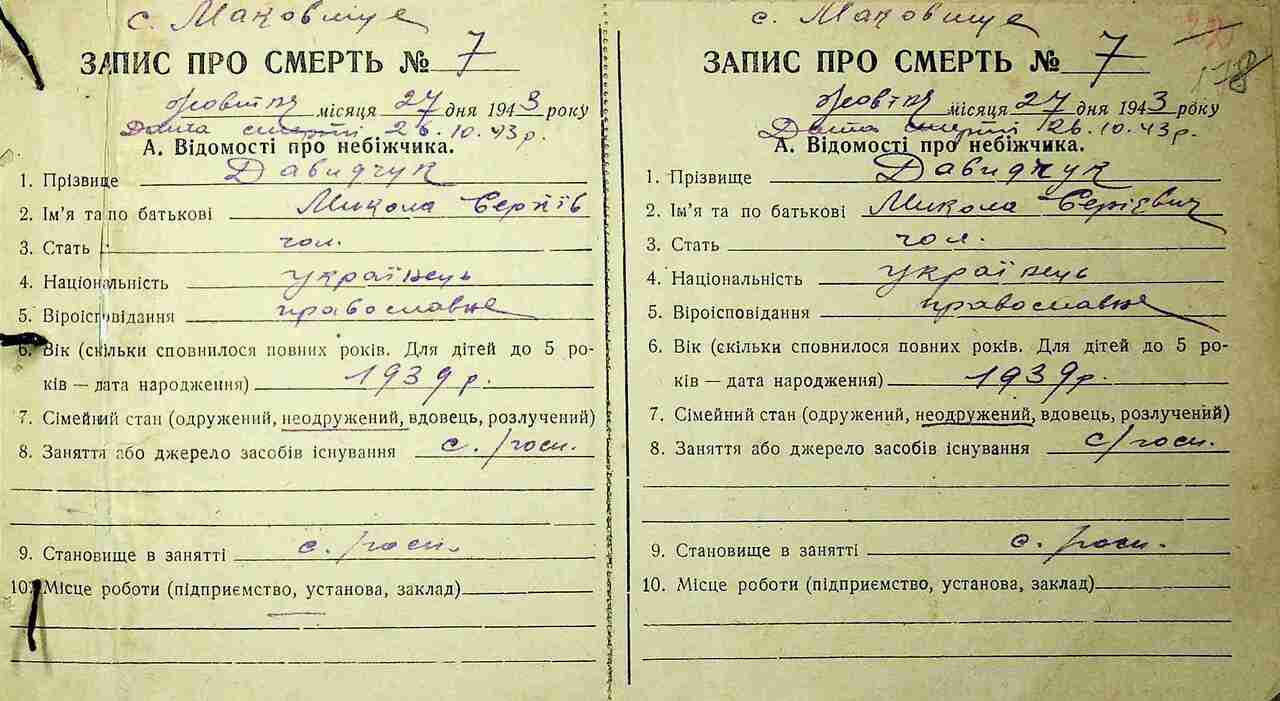 с. Маковище
ЗАПИС ПРО СМЕРТЬ № 7
Жовтня місяця 27 дня 1943 року
Дата смерті 26.10.43 р.
А. Відомості про небіжчика.
1. Прізвище Давидчук
2. Ім'я та по батькові Микола Сергіїв
3. Стать чол.
4. Національність українець
5. Віроісповідання православне
6. Вік (скільки сповнилося повних років. Для дітей до 5 ро-
ків — дата народження) 1939 р.
7. Сімейний стан (одружений, неодружений, вдовець, розлучений)
8. Заняття або джерело засобів існування с./госп.
9. Становище в занятті с./госп.
10. Місце роботи (підприємство, установа, заклад)
с. Маковище
ЗАПИС ПРО СМЕРТЬ № 7
178
Жовтня місяця 27 дня 1943 року
Дата смерті 26.10.43 р.
А. Відомості про небіжчика.
1. Прізвище Давидчук
2. Ім'я та по батькові Микола Сергієвич
3. Стать чол.
4. Національність українець
5. Віроісповідання православне
6. Вік (скільки сповнилося повних років. Для дітей до 5 ро-
ків — дата народження) 1939 р.
7. Сімейний стан (одружений, неодружений, вдовець, розлучений)
8. Заняття або джерело засобів існування с/госп.
9. Становище в занятті с./госп.
10. Місце роботи (підприємство, установа, заклад)